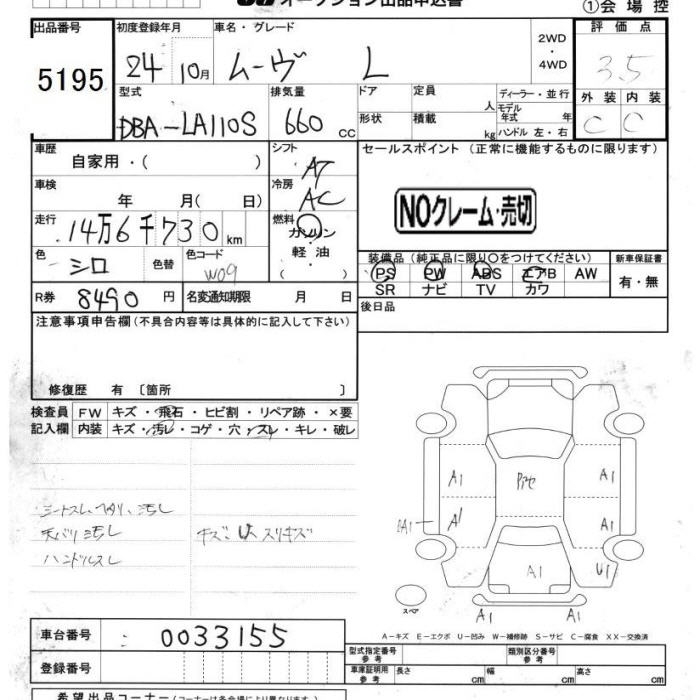 オークション出品申込書
①会場控
出品番号 初度登録年月 車名・グレード 評価点
5195 24 10月 ムーヴ L 2WD・4WD 3.5
型式 排気量 ドア 定員 人 ディーラー・並行 外装 内装
DBA-LA110S 660 cc 形状 積載 kg モデル年式 年 ハンドル 左・右 C C
車歴 自家用・( ) シフト AT セールスポイント (正常に機能するものに限ります)
車検 年 月( 日) 冷房 AC
NOクレーム・売切
走行 14万6千730km 燃料 ガソリン 軽油 ( )
色 シロ 色替 色コード W09
装備品 (純正品に限り○をつけてください) 新車保証書
PS PW ABS エアB AW 有・無
SR ナビ TV カワ
R券 8490円 名変通知期限 月 日
後日品
注意事項申告欄(不具合内容等は具体的に記入して下さい)
修復歴 有 [箇所 ]
検査員 FW キズ・飛石・ヒビ割・リペア跡・×要
記入欄 内装 キズ・汚レ・コゲ・穴・スレ・キレ・破レ
シートスレ、ヘタリ、汚レ
天バリ汚レ
ハンドルスレ
キズ、U、スリキズ
A1 A1
A1 A1 A1
A1 U1
A1 A1
スペア
A-キズ E-エクボ U-凹み W-補修跡 S-サビ C-腐食 XX-交換済
車台番号 0033155
型式指定番号 参考 類別区分番号 参考
登録番号
車庫証明用 参考 長さ cm 幅 cm 高さ cm
希望出品コーナー(コーナーは各会場により異なります)